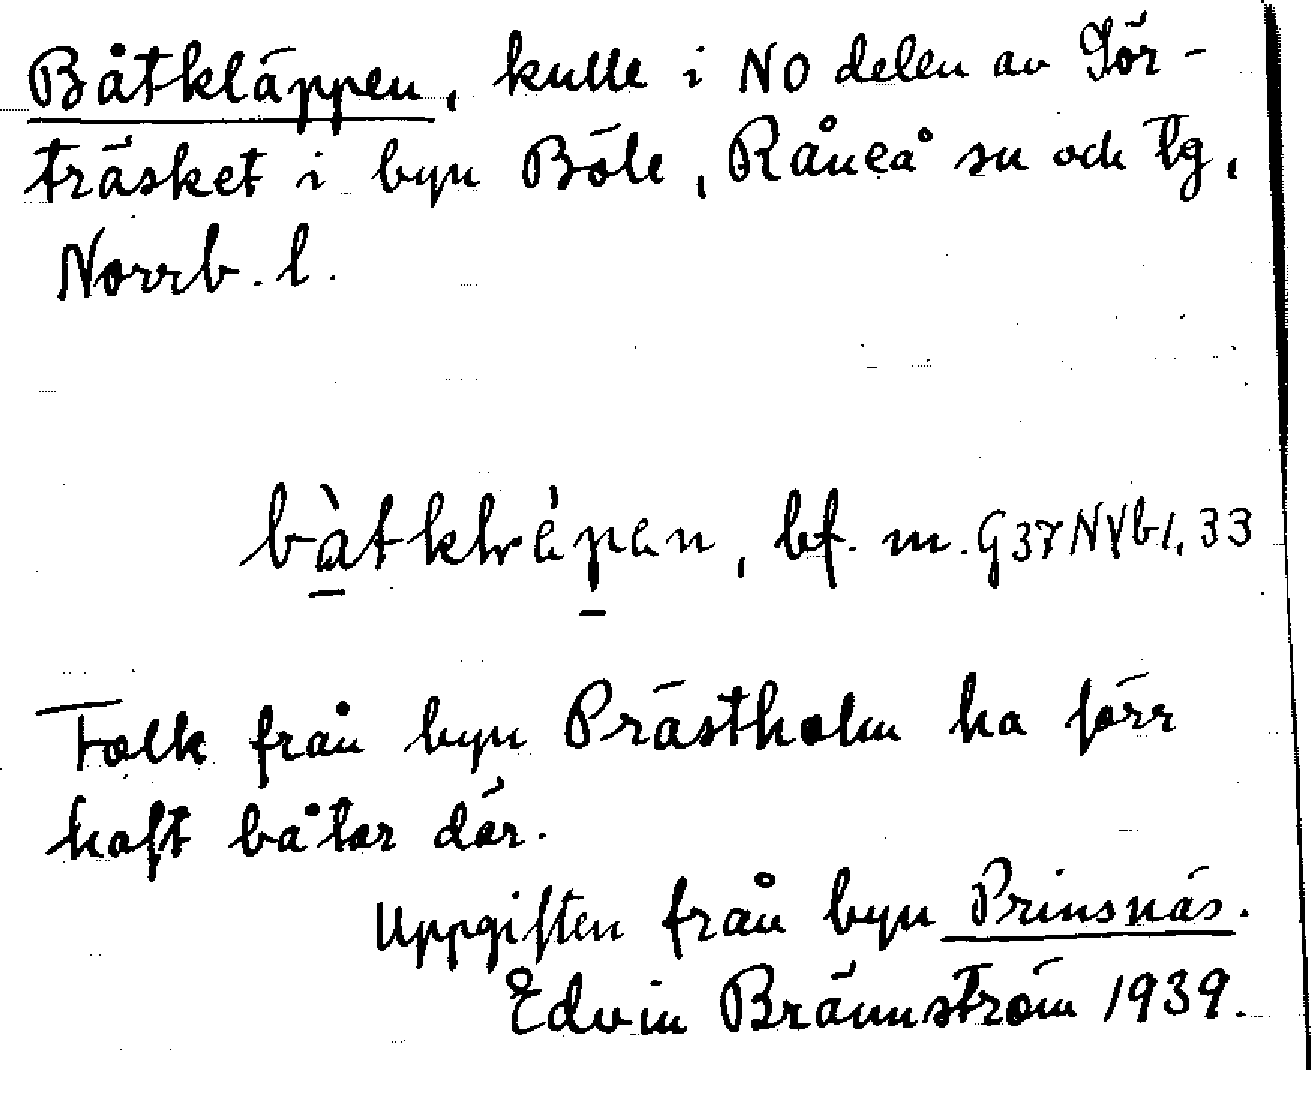 Båtkläppen, kulle i NO delen av Sör-
träsket i byn Böle, Råneå sn och tg,
Norrb. l.
båtkläpen, bf. m. G37NYb1,33
Folk från byn Prästholm ha förr
haft båtar där.
Uppgiften från byn Prinsnäs.
Edvin Brännström 1939.